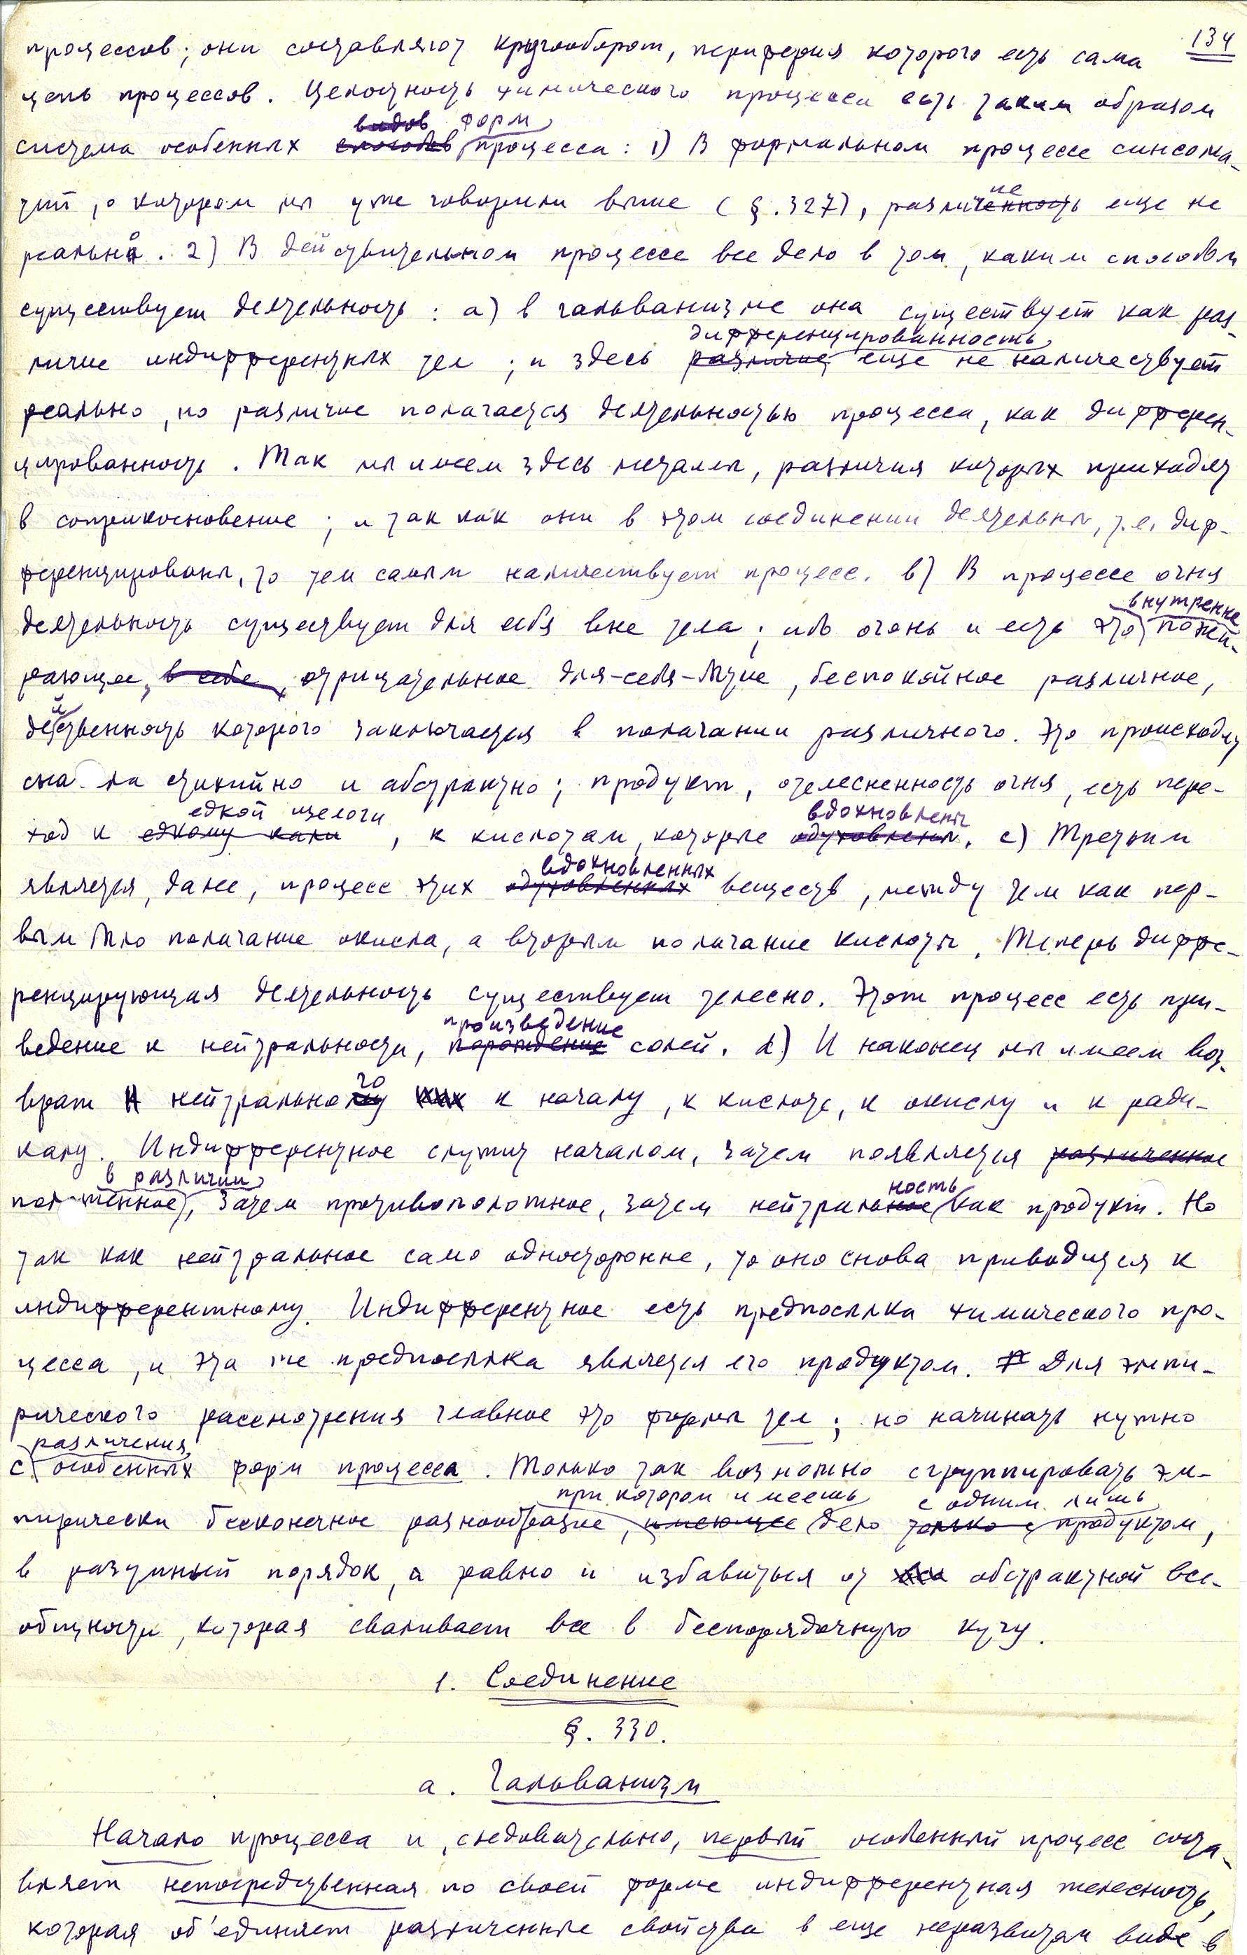 134
процессов; они составляют кругооборот, периферия которого есть сама
цепь процессов. Целостность химического процесса есть таким образом
система особенных форм процесса: 1) В формальном процессе синсома-
тий, о котором мы уже говорили выше (§. 327), различие еще не
реально. 2) В действительном процессе все дело в том, каким способом
существует деятельность: a) в гальванизме она существует как раз-
личие индифферентных тел; и здесь дифференцированность еще не наличествует
реально, но различие полагается деятельностью процесса, как дифферен-
цированность. Так мы имеем здесь металлы, различия которых приходят
в соприкосновение; и так как они в этом соединении деятельны, т.е. диф-
ференцированы, то тем самым наличествует процесс. b) В процессе огня
деятельность существует для себя вне тела; ибо огонь и есть это внутренне пожи-
рающее, отрицательное для-себя-бытие, беспокойное различное,
действенность которого заключается в полагании различного. Это происходит
сна ла стихийно и абстрактно; продукт, отелесненность огня, есть пере-
ход к едкой щелочи, к кислотам, которые вдохновлены. c) Третьим
является, далее, процесс этих вдохновленных веществ, между тем как пер-
вым было полагание окисла, а вторым полагание кислоты. Теперь диффе-
ренцирующая деятельность существует телесно. Этот процесс есть при-
ведение к нейтральности, произведение солей. d) И наконец мы имеем воз-
врат нейтрального к началу, к кислоте, к окислу и к ради-
калу. Индифферентное служит началом, затем появляется
положенное в различии, затем противоположное, затем нейтральность как продукт. Но
так как нейтральное само односторонне, то оно снова приводится к
индифферентному. Индифферентное есть предпосылка химического про-
цесса, и эта же предпосылка является его продуктом. Для эмпи-
рического рассмотрения главное это формы тел; но начинать нужно
с различения особенных форм процесса. Только так возможно сгруппировать эм-
пирически бесконечное разнообразие, при котором имеешь дело с одним лишь продуктом,
в разумный порядок, а равно и избавиться от абстрактной все-
общности, которая сваливает все в беспорядочную кучу.
1. Соединение
§. 330.
a. Гальванизм
Начало процесса и, следовательно, первый особенный процесс соста-
вляет непосредственная по своей форме индифферентная телесность,
которая об'единяет различенные свойства в еще неразвитом виде в